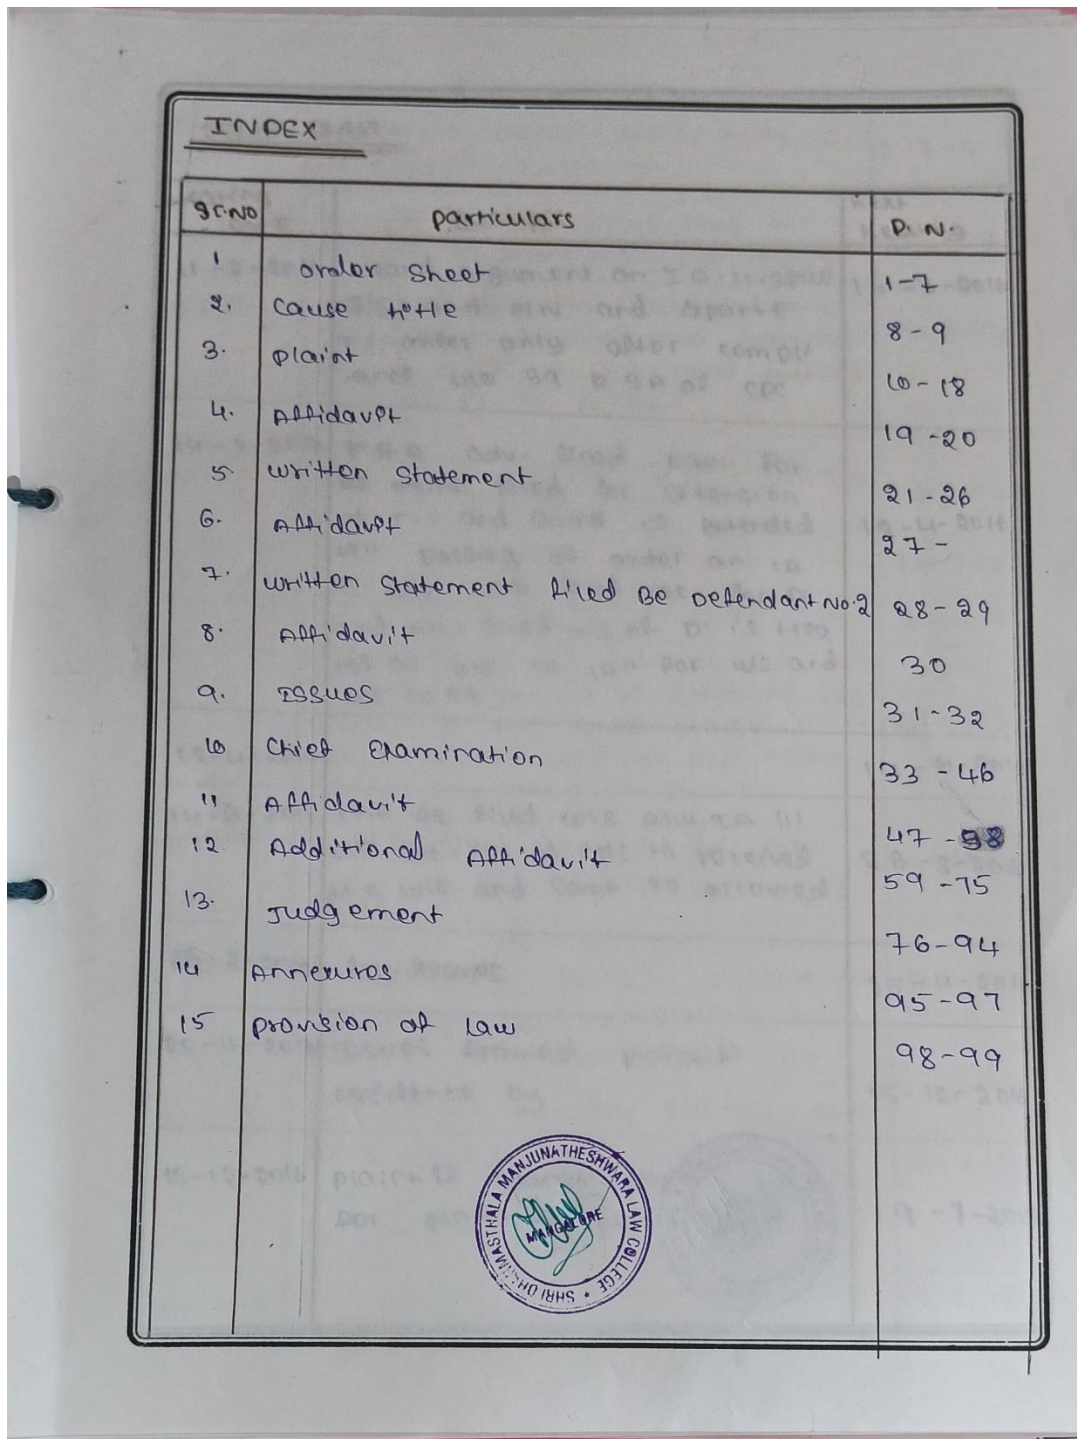 INDEX
Sr.NO Particulars P. N.
1 order Sheet 1-7
2. Cause title 8-9
3. Plaint 10-18
4. Affidavit 19-20
5. Written Statement 21-26
6. Affidavit 27-
7. Written Statement filed Be Defendant No.2 28-29
8. Affidavit 30
9. Issues 31-32
10 Chief Examination 33-46
11 Affidavit 47-58
12 Additional Affidavit 59-75
13. Judgement 76-94
14 Annexures 95-97
15 Provision of Law 98-99
SHRI DHARMASTHALA MANJUNATHESHWARA LAW COLLEGE *
MANGALORE